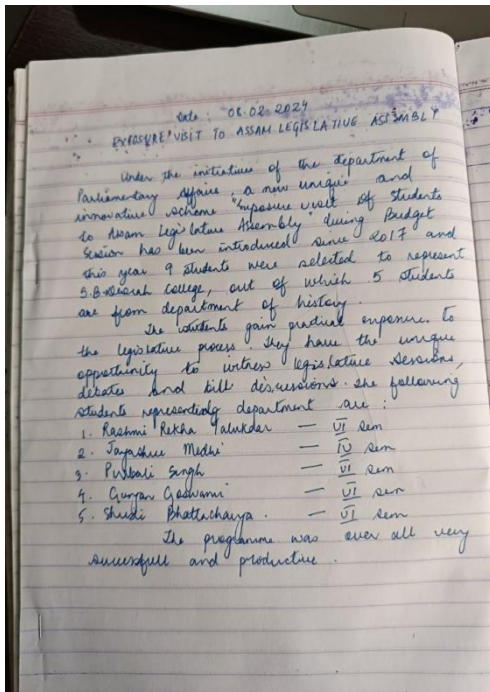 Date : 08.02.2024
EXPOSURE VISIT TO ASSAM LEGISLATIVE ASSEMBLY
Under the initiatives of the department of
Parliamentary Affairs, a new unique and
innovative scheme "Exposure visit of students
to Assam Legislature Assembly" during Budget
Session has been introduced since 2017 and
this year 9 students were selected to represent
S.B. Deorah College, out of which 5 students
are from department of history.
The students gain practical exposure to
the legislature process. They have the unique
opportunity to witness legislature sessions,
debates and bill discussions. The following
students representing department are :
1. Rashmi Rekha Talukdar — VI sem
2. Jayashree Medhi — IV sem
3. Purbali Singh — VI sem
4. Gunjan Goswami — VI sem
5. Shruti Bhattacharya. — VI sem
The programme was over all very
successfull and productive.